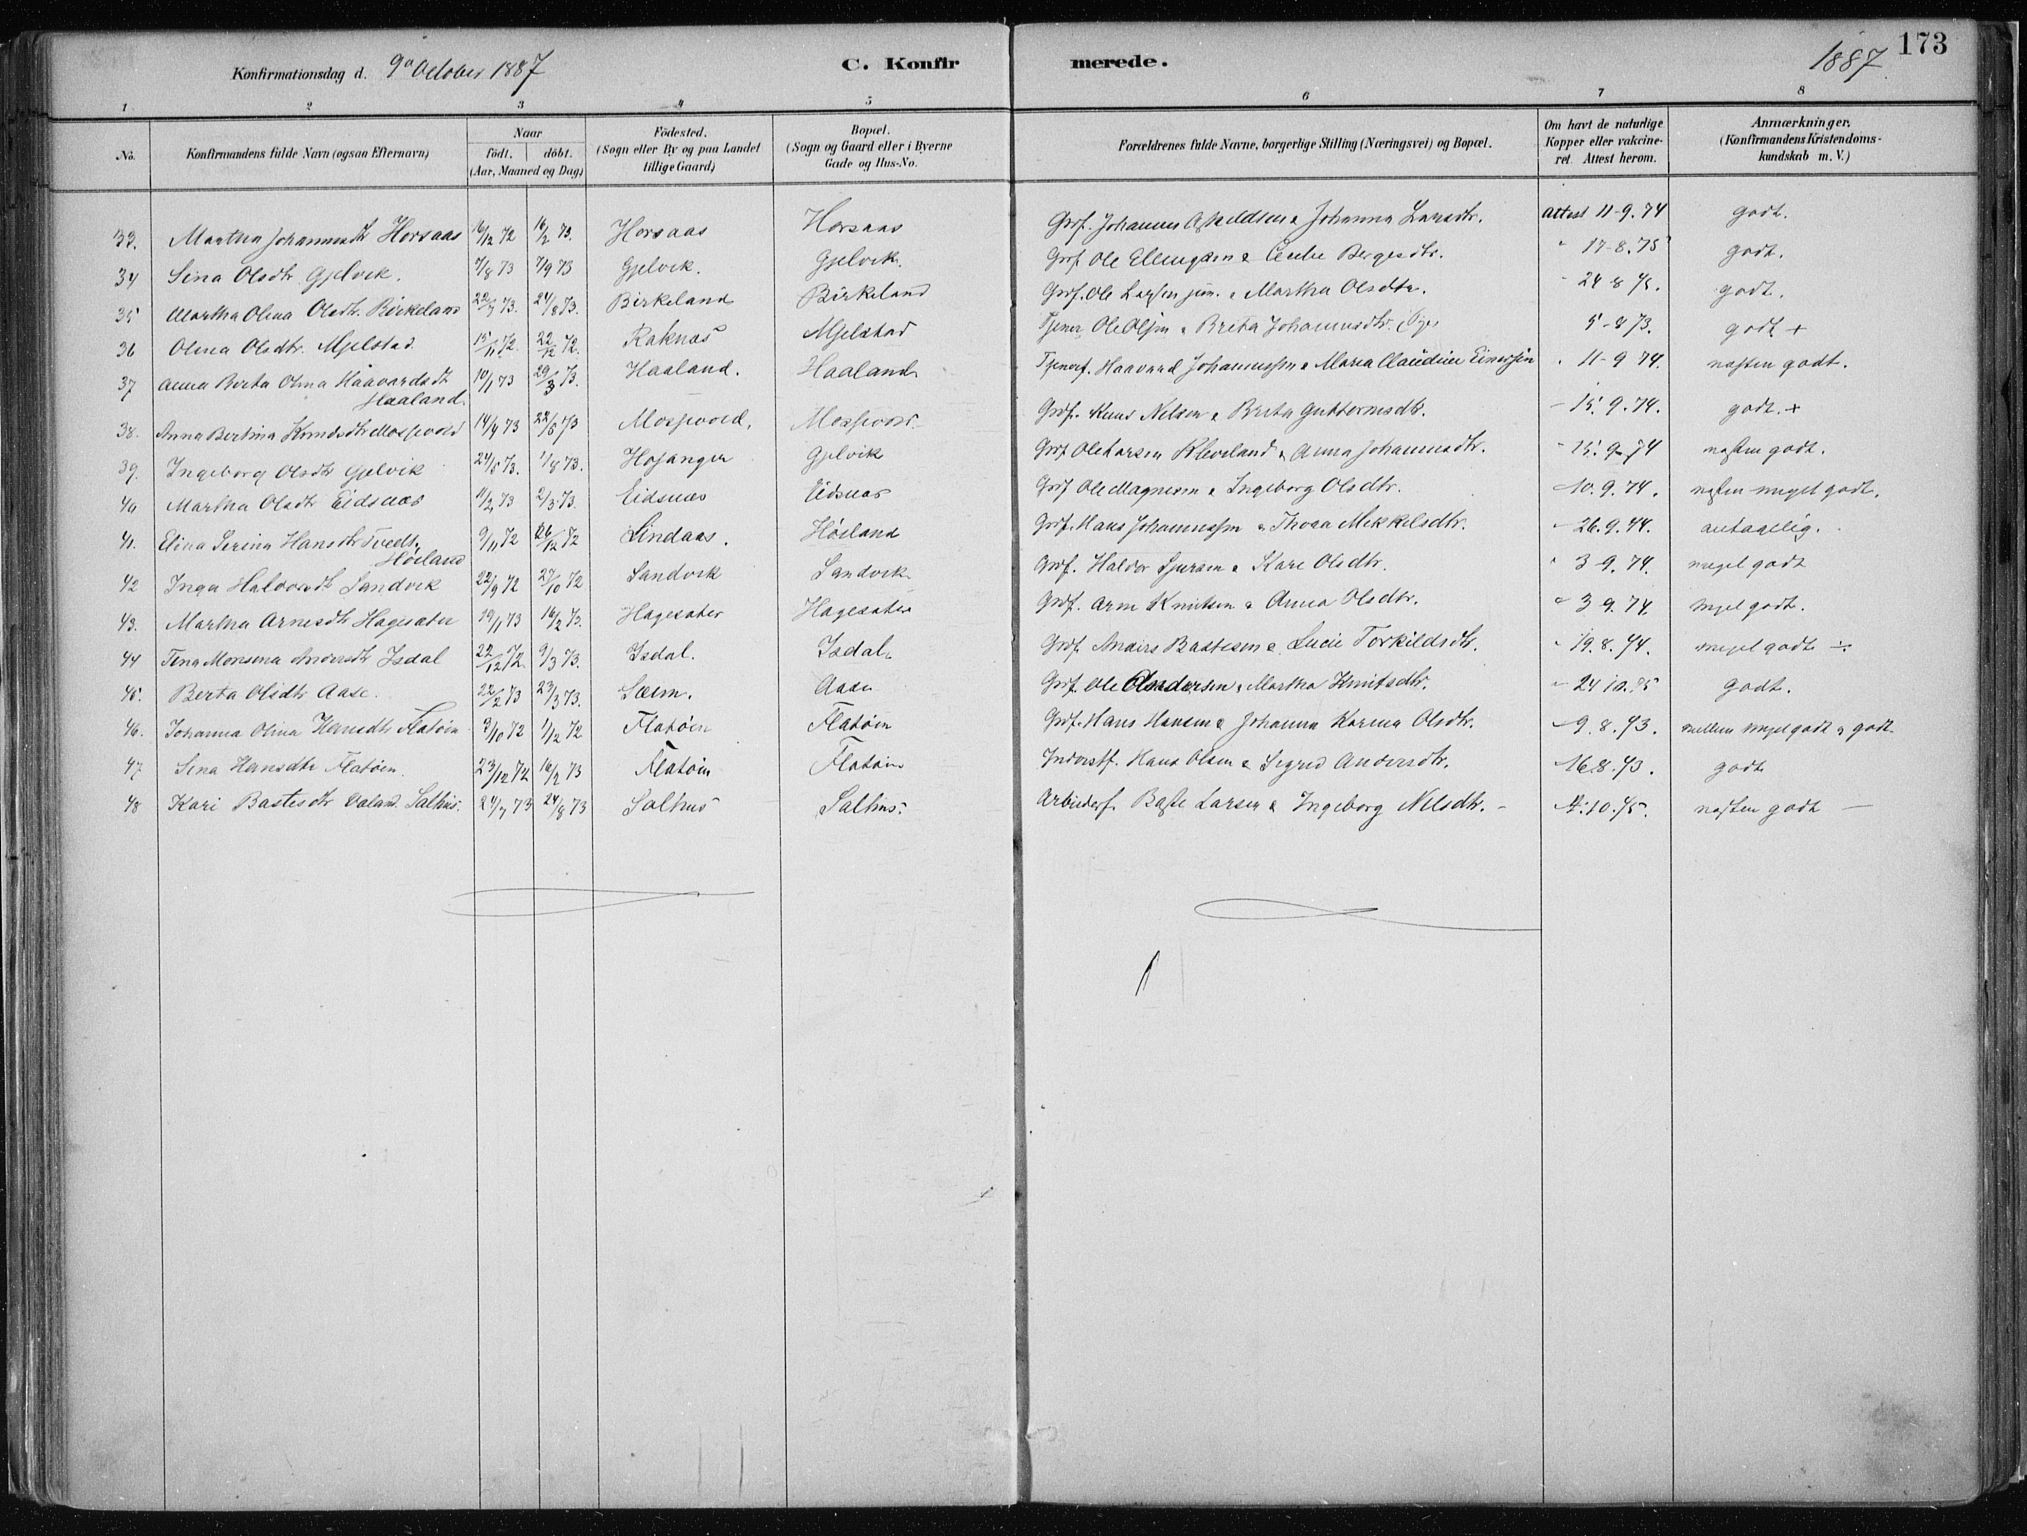 Konfirmationsdag d. 9de October 1887 C. Konfir merede. 1887 173
1 2 3 4 5 6 7 8
No. Konfirmandens fulde Navn (ogsaa Efternavn) Naar födt. döbt. (Aar, Maaned og Dag) Födested. (Sogn eller By og paa Landet tillige Gaard) Bopæl. (Sogn og Gaard eller i Byerne Gade og Hus-No. Forældrenes fulde Navne, borgerlige Stilling (Næringsvei) og Bopæl. Om havt de naturlige Kopper eller vakcineret. Attest herom. Anmærkninger. (Konfirmandens Kristendomskundskab m. V.)
33. Martha Johannesdtr Horsaas 16/12 72 16/2 73. Horsaas Horsaas Grdf. Johannes Askeldsen & Johanna Larsdtr. Attest 11-9.74 godt.
34 Sina Olsdtr Gjelvik. 7/8 73 7/9 73 Gjelvik. Gjelvik. Grdf. Ole Ellingsen & Cecilie Bergesdtr. " 17-8.75 godt.
35 Martha Olina Olsdtr. Birkeland 22/7 73. 24/8 73. Birkeland Birkeland Grdf. Ole Larsen jun. & Martha Olsdtr. - 24-8 75. godt.
36 Olina Olsdtr. Mjelstad 15/11 72. 22/12 72. Raknæs Mjelstad Tjener Ole Olsen & Brita Johannesdtr. 5-8 73. godt +
37 Anna Berta Olina Haavardsdtr Haaland 10/1 73 29/3 73. Haaland. Haaland. Tjenerf. Haavard Johannessen & Maria Claudine Einersen " 11-9 74. næsten godt.
38. Anna Bertina Knudsdtr Mospvold 14/4 73 22/5 73 Mospvold. Mospvold. Grdf. Knud Nelsen & Brita Guttormsdtr. - 15.9.74. godt. +
39. Ingeborg Olsdtr Gjelvik 24/5 73. 1/8 73. Hosanger Gjelvik Grdf Ole Larsen Kleveland & Anna Johannesdtr. - 15.9.74 næsten godt.
40 Martha Olsdtr Eidsnæs 11/2 73 2/3 73. Eidsnæs Eidsnæs Grdf Ole Magnesen & Ingeborg Olsdtr. -10.9.74. næsten meget godt.
41. Elina Serina Hansdtr Tvedt. Höiland 9/11 72 26/12 72 Lindaas. Höiland Grdf. Hans Johannessen & Thoaa Mikkelsdtr. -26.9.74. antagelig.
42 Inga Halvorsdtr Sandvik 22/9 72 27/10 72 Sandvik Sandvik Grdf. Haldor Sjursen & Kari Olsdtr. " 3-9.74. meget godt
43. Martha Arnesdtr Hagesæter 19/1 73 16/2 73. Hagesæter Hagesæter Grdf. Arne Knutsen & Anna Olsdtr. " 3-9.74 meget godt.
44 Tina Monsina Andersdtr Isdal 22/12 72. 9/3 73. Isdal. Isdal. Grdf. Anders Bastesen & Lucie Torkildsdtr. - 19.8.74. meget godt ÷
45 Berta Olsdtr Aase. 22/2 73 23/3 73. Sæim. Aase Grdf. Ole Andersen & Martha Knutsdtr. - 24 10.75 godt.
46. Johanna Olina Hansdtr Flatöen 9/10 72 1/12 72 Flatöen Flatöen Grdf. Hans Hansen & Johanna Karina Olsdtr. -9.8.73. mellem meget godt & godt.
47 Sina Hansdtr Flatöen. 23/12 72 16/2 73 Flatöen Flatöen Inderstf. Hans Olsen & Sigrid Andersdtr. -16.8.73. godt
48 Kari Bastesdtr Daland. Salhus. 24/7 73 24/8 73 Salhus Salhus. Arbeiderf. Baste Larsen & Ingeborg Nelsdtr. - 4.10.75. næsten godt —